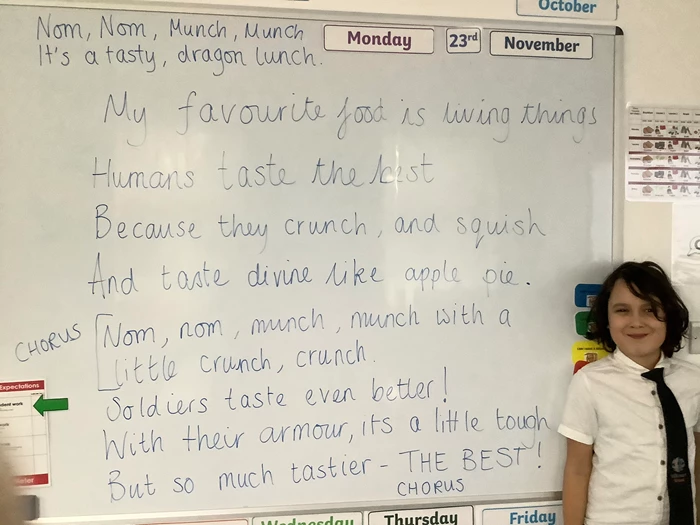 October
Nom, Nom, Munch, Munch
It's a tasty, dragon lunch.
Monday
23rd
November
My favourite food is living things
Humans taste the best
Because they crunch, and squish
And taste divine like apple pie.
CHORUS
Nom, nom, munch, munch with a
little crunch, crunch.
Soldiers taste even better!
With their armour, its a little tough
But so much tastier - THE BEST!
CHORUS
Expectations
Wednesday
Thursday
Friday